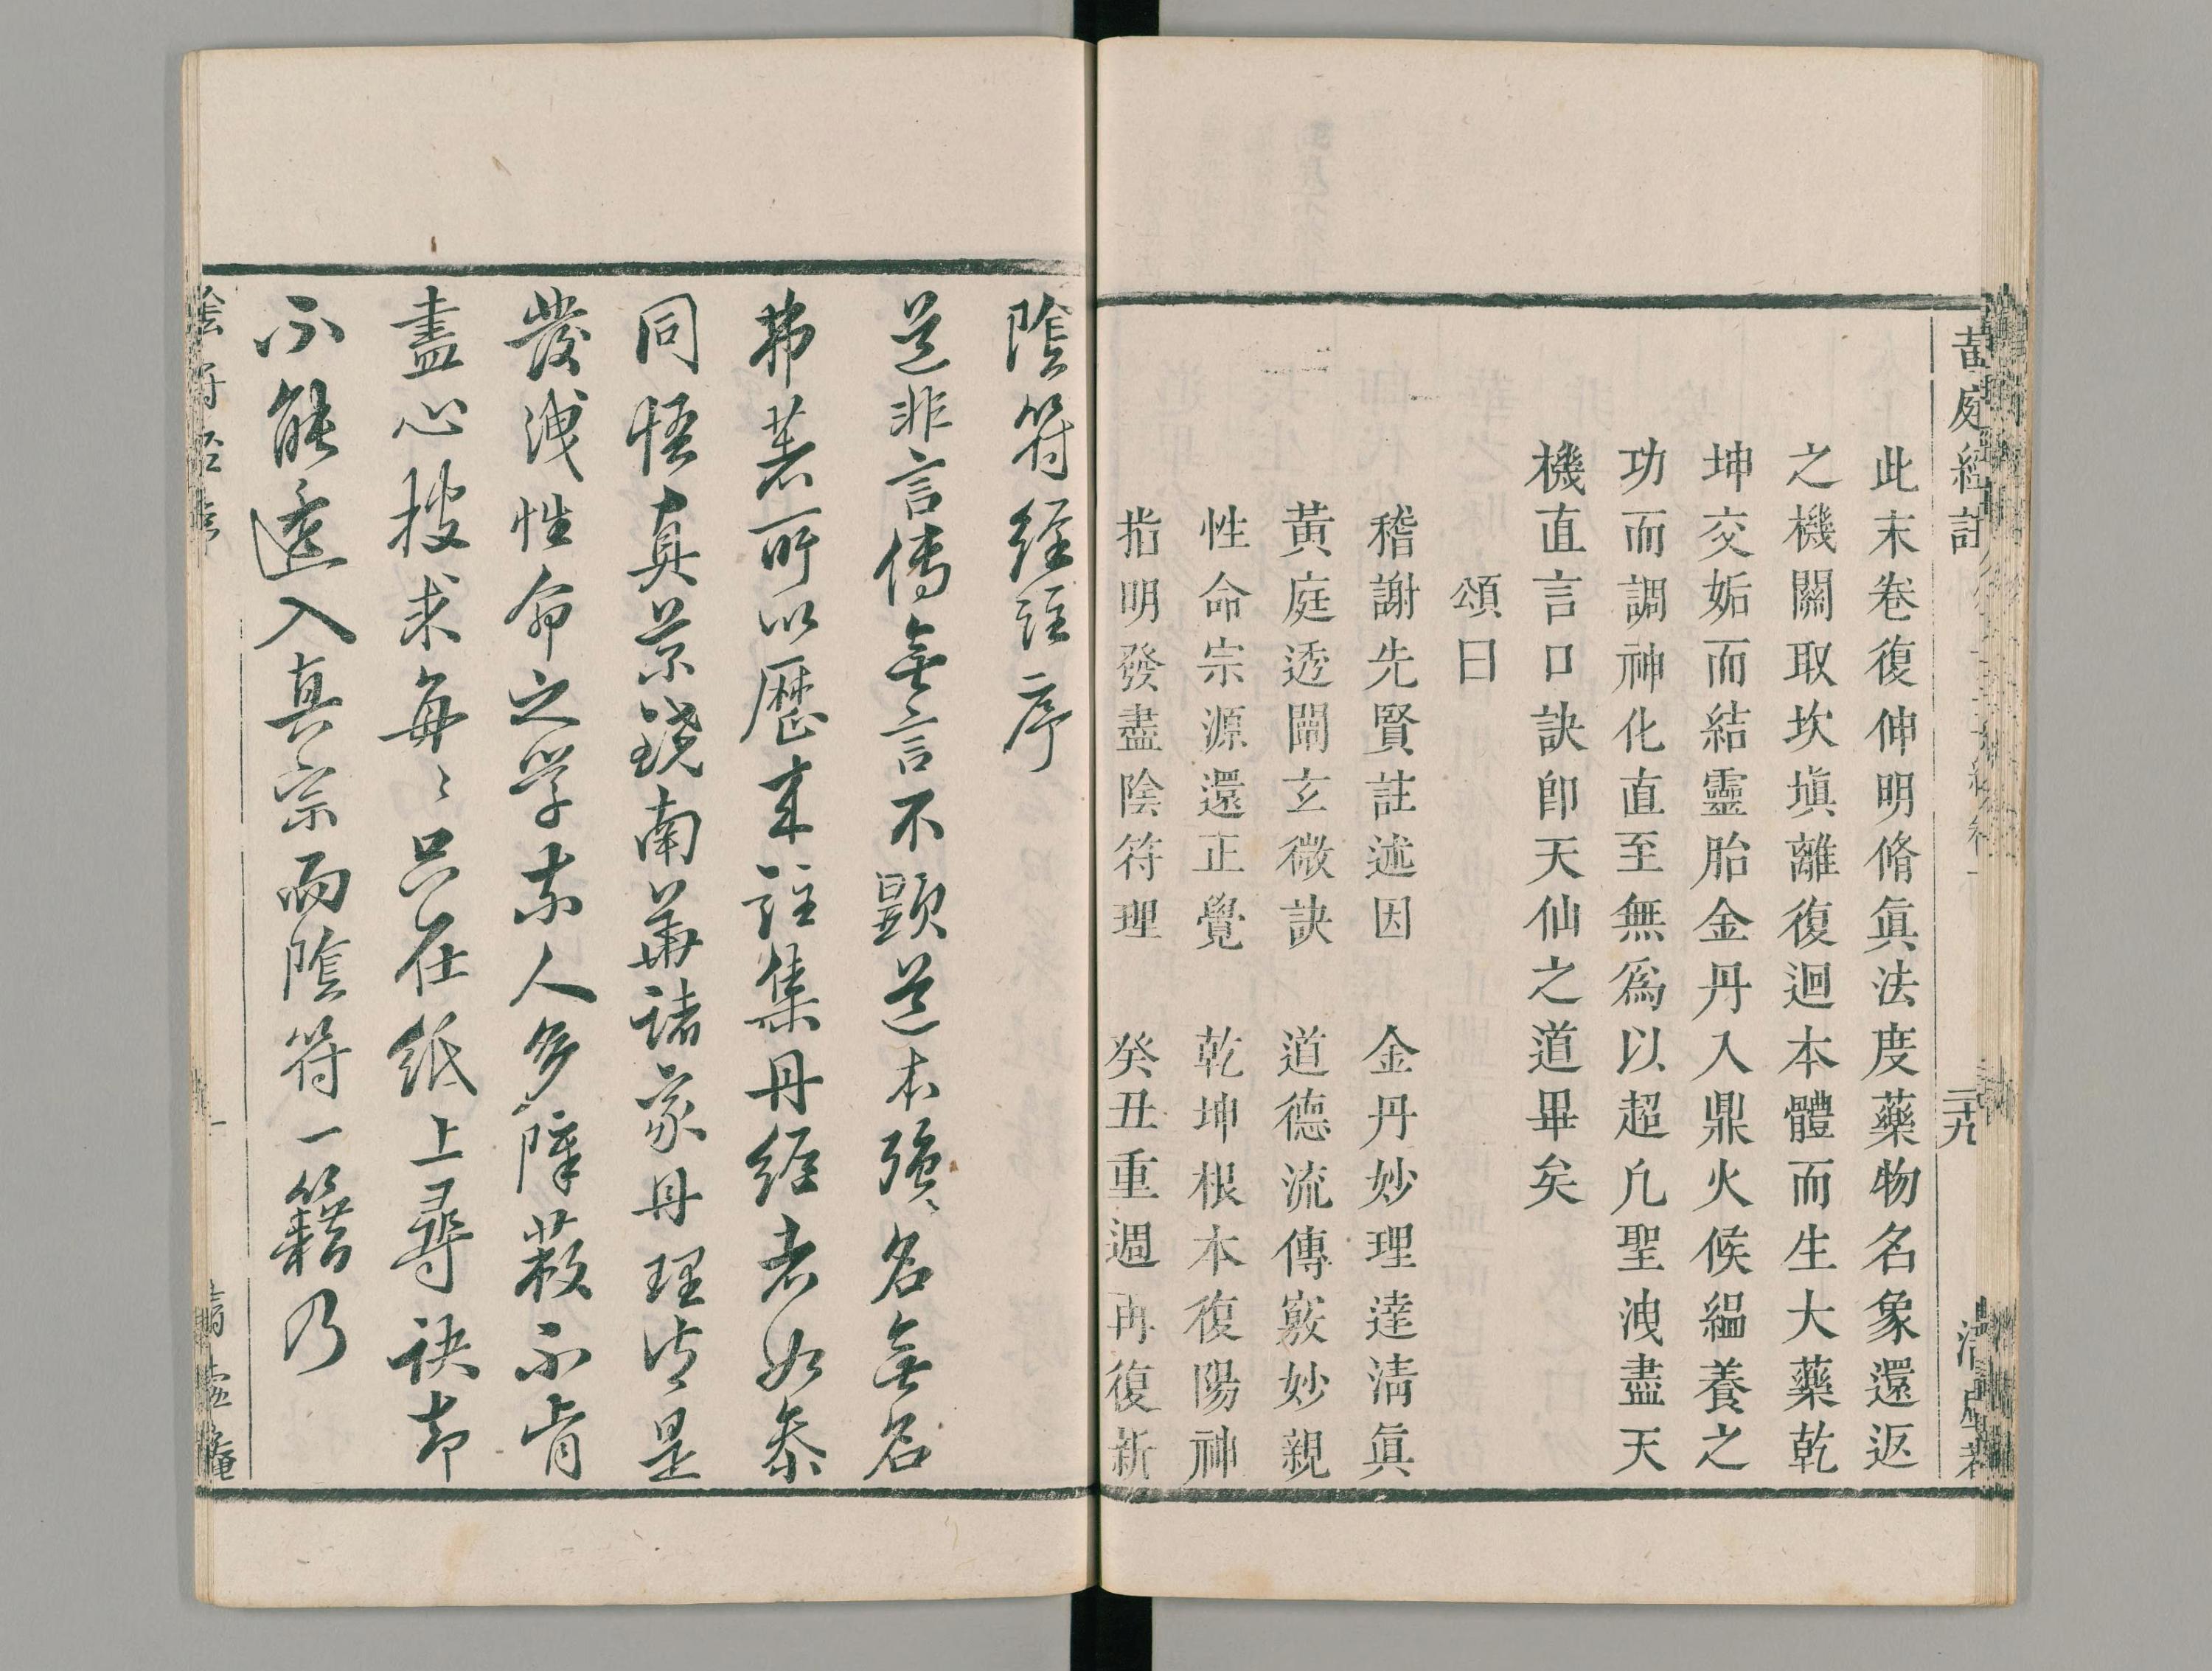 黃庭經註
二十九
此末卷復伸明脩眞法度藥物名象還返
之機關取坎塡離復迴本體而生大藥乾
坤交姤而結靈胎金丹入鼎火候縕養之
功而調神化直至無爲以超凡聖洩盡天
機直言口訣卽天仙之道畢矣
頌曰
稽謝先賢註述因　金丹妙理達淸眞
黃庭透關玄微訣　道德流傳竅妙親
性命宗源還正覺　乾坤根本復陽神
指明發盡陰符理　癸丑重週再復新
陰符經註序
道非言傳無言不顯道本強名無名
弗著所以歷來註集丹經者如參
同悟眞景鐃南華諸家丹理皆是
發洩性命之學柰人多障蔽不肯
盡心搜求每〻只在紙上尋訣却
不能透入真宗而陰符一籍乃
陰符經序
一